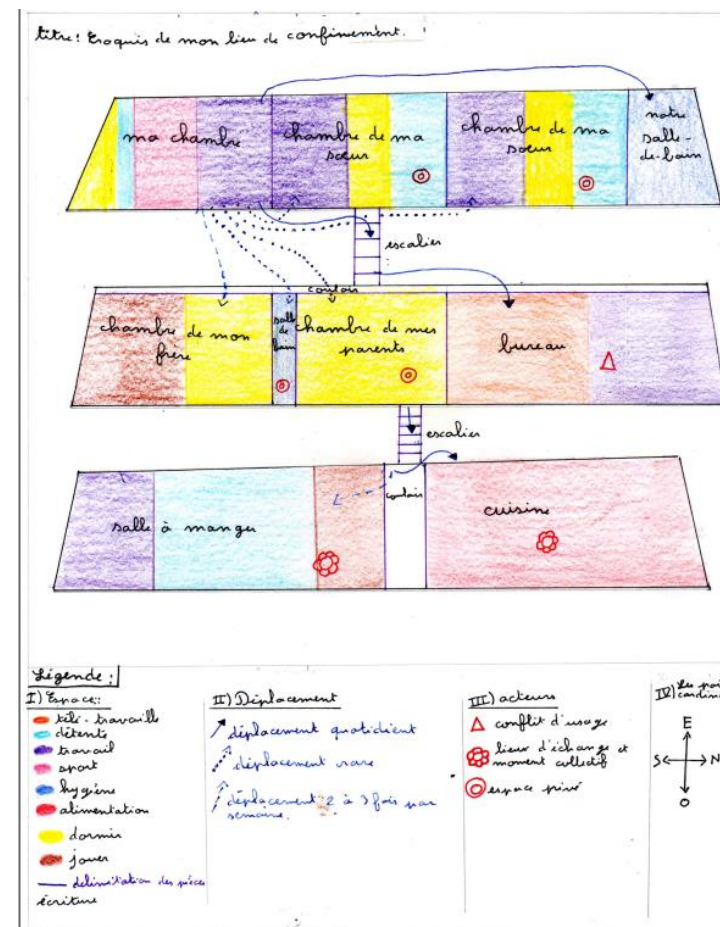 titre: Croquis de mon lieu de confinement.
ma chambre
chambre de ma
sœur
chambre de ma
sœur
notre
salle-
de-bain
escalier
couloir
chambre de mon
frère
salle
de
bain
chambre de mes
parents
bureau
escalier
salle à manger
couloir
cuisine
Légende:
I) Espace:
télé-travaille
détente
travail
sport
hygiène
alimentation
dormir
jouer
délimitation des pièces
écriture
II) Déplacement
déplacement quotidient
déplacement rare
déplacement 2 à 3 fois par
semaine.
III) acteurs
conflit d'usage
lieux d'échange et
moment collectif
espace privé
IV) Les
E
S N
O